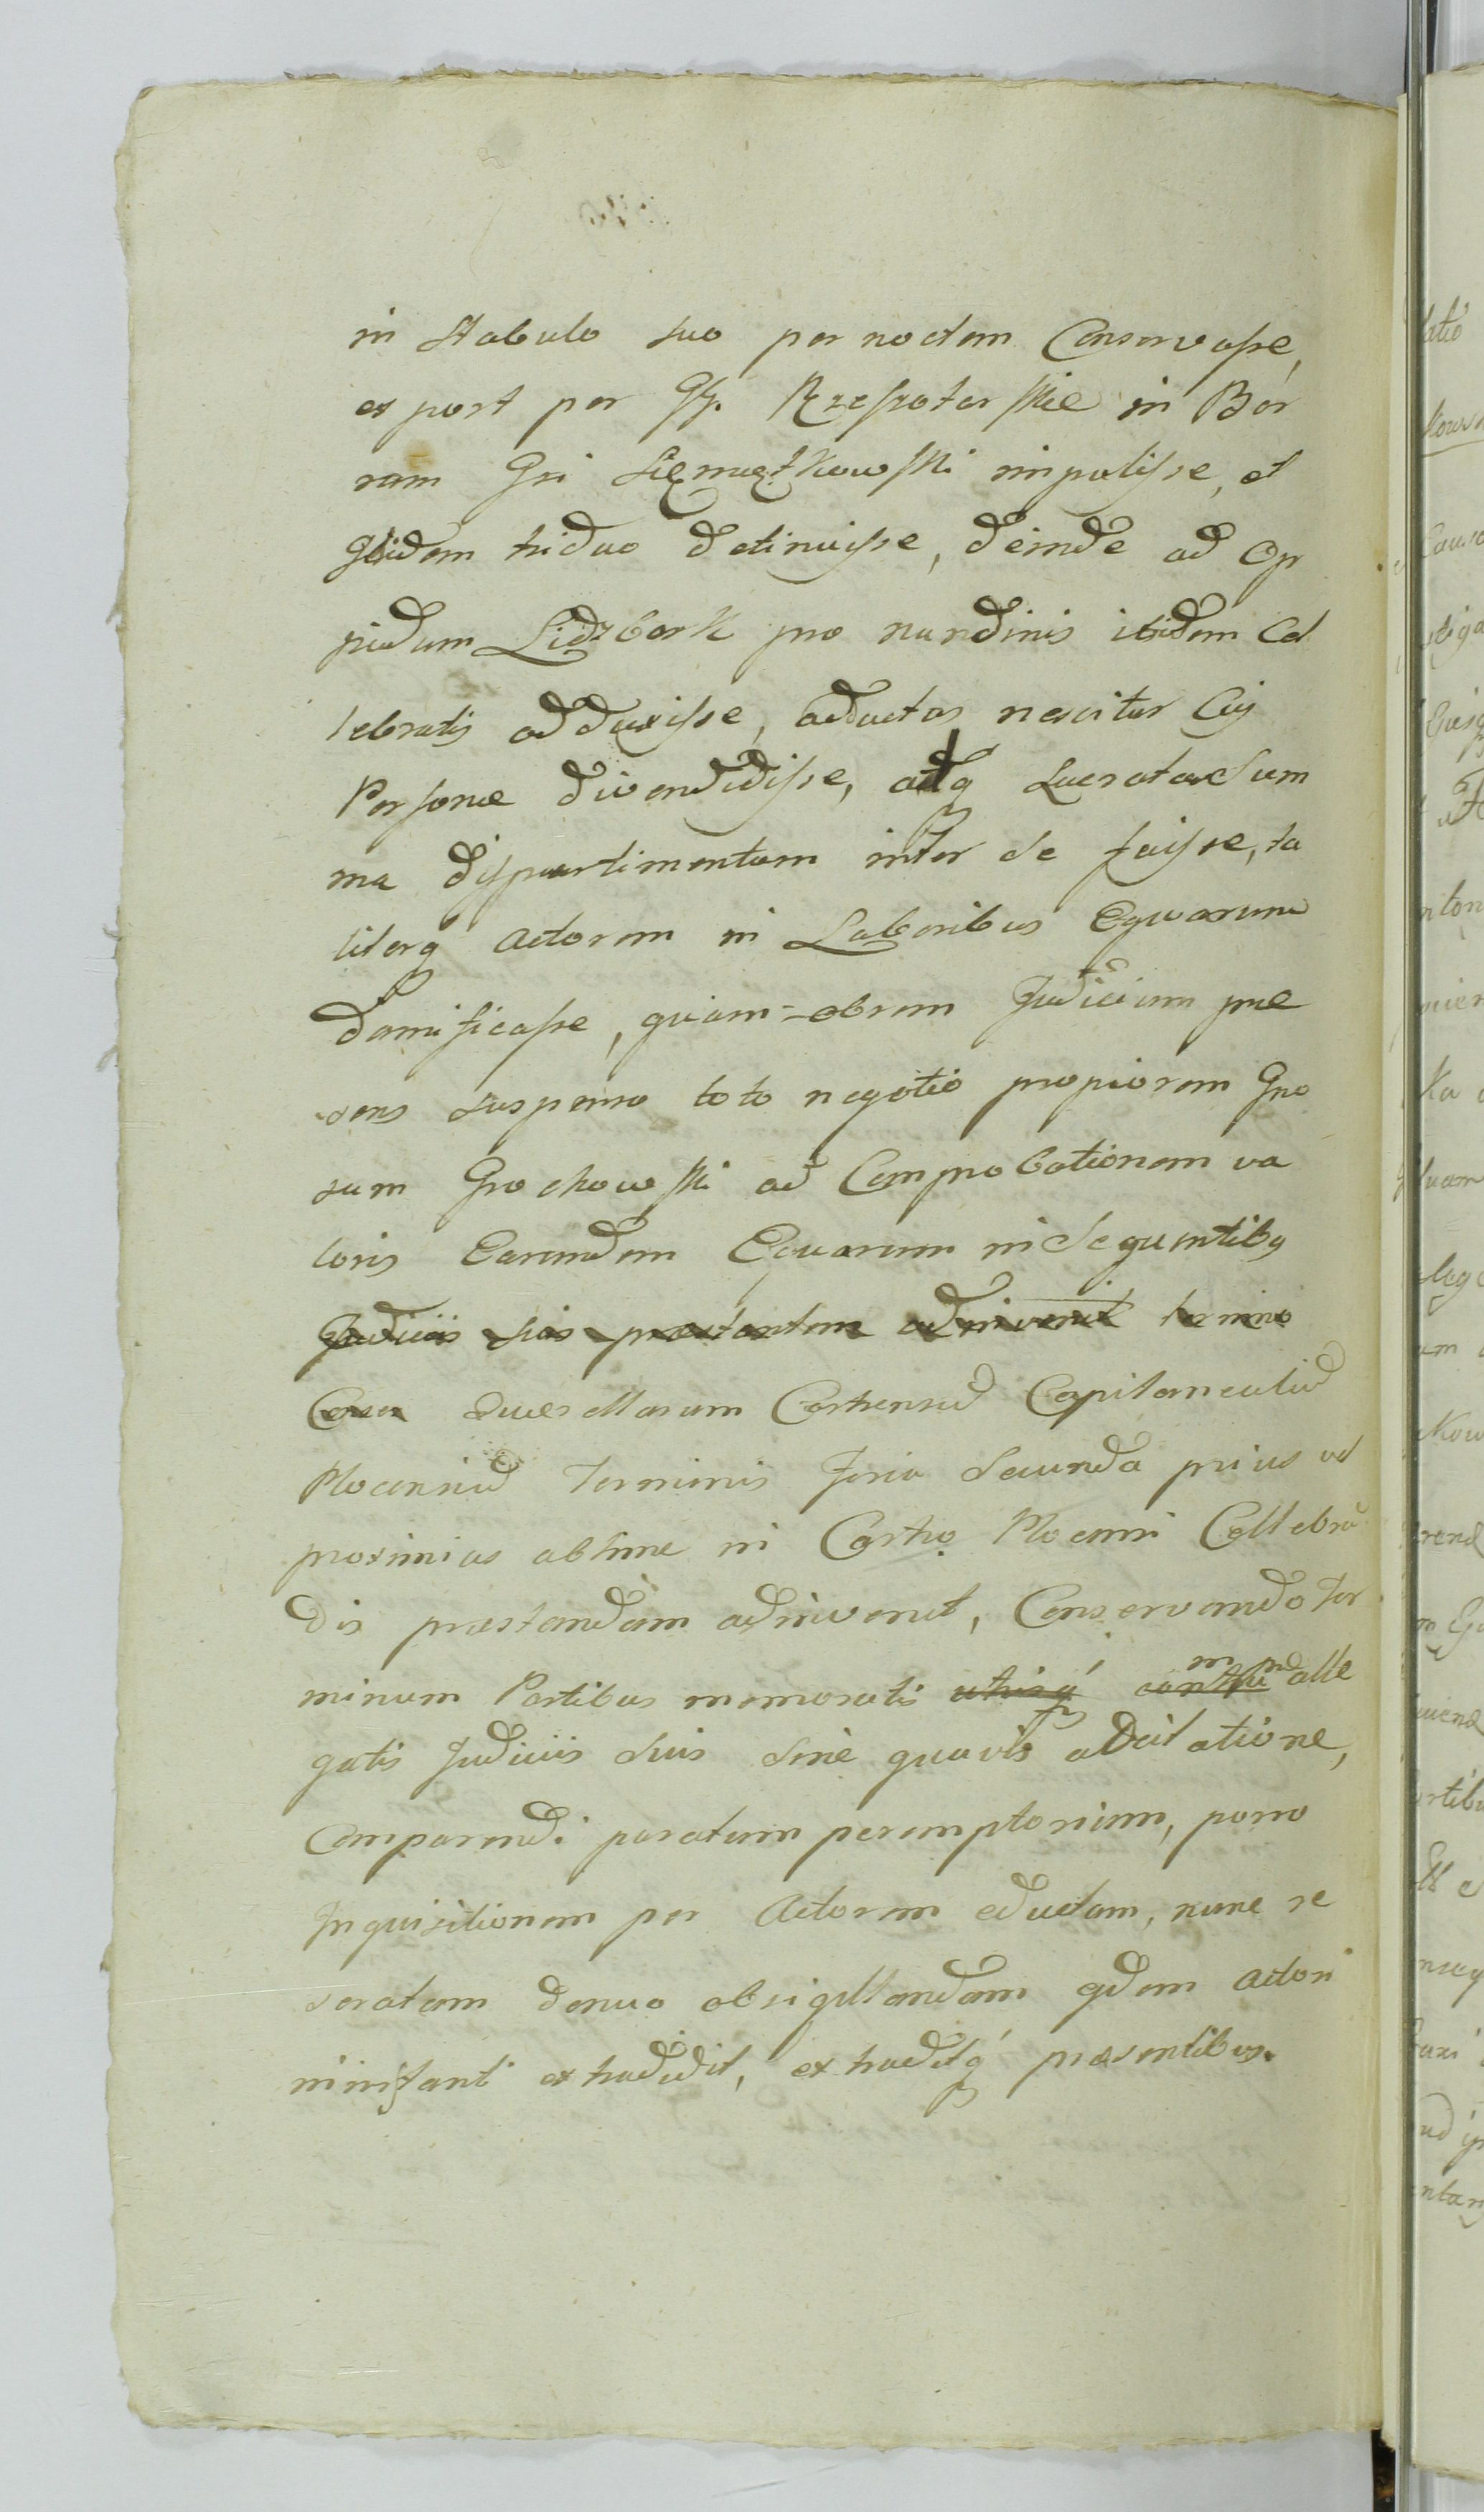 in Stabulo suo per noctem Conservasse,
et post per GG. Rzeszotarskie in Bor
ram Gsi Siemiątkowski impulisse, et
ibidem triduo detinuisse, deinde ad Op
pidum Lidzbark pro nundinis ibidem Cel
lebratis adduxisse, adductas nescitur Cuj
Personae divendidisse, adq Lucrata Sum
ma dispartimentum inter se fuisse, ta
literq Actorem in Laboribus Equarum
damificasse, quam-obrem Judicium prae
sens suspenso toto negotio propiorem Gno
sum Grochowski ad Comprobationem va
loris Earundem Equarum in Sequentibq
Judiciis suis praestantem adinvenit termino
Coram Querellarum Castrensiu Capitanealiu
Plocensiu Terminis Feria Secunda prius vel
proximius abhinc in Castro Plocensi Cellebra
dis praestandam adinvenit, Conservando Ter
minum Partibus memoratis utrisq́ alle
gatis Judiciis Suis Sine quavis adcitatione,
Comparendi paratum peremptorium, porro
Inquisitionem per Actorem eductam, nunc re
seratam denuo obsigillandam eidem Actori
instanti extradidit, extraditq́ praesentibus.